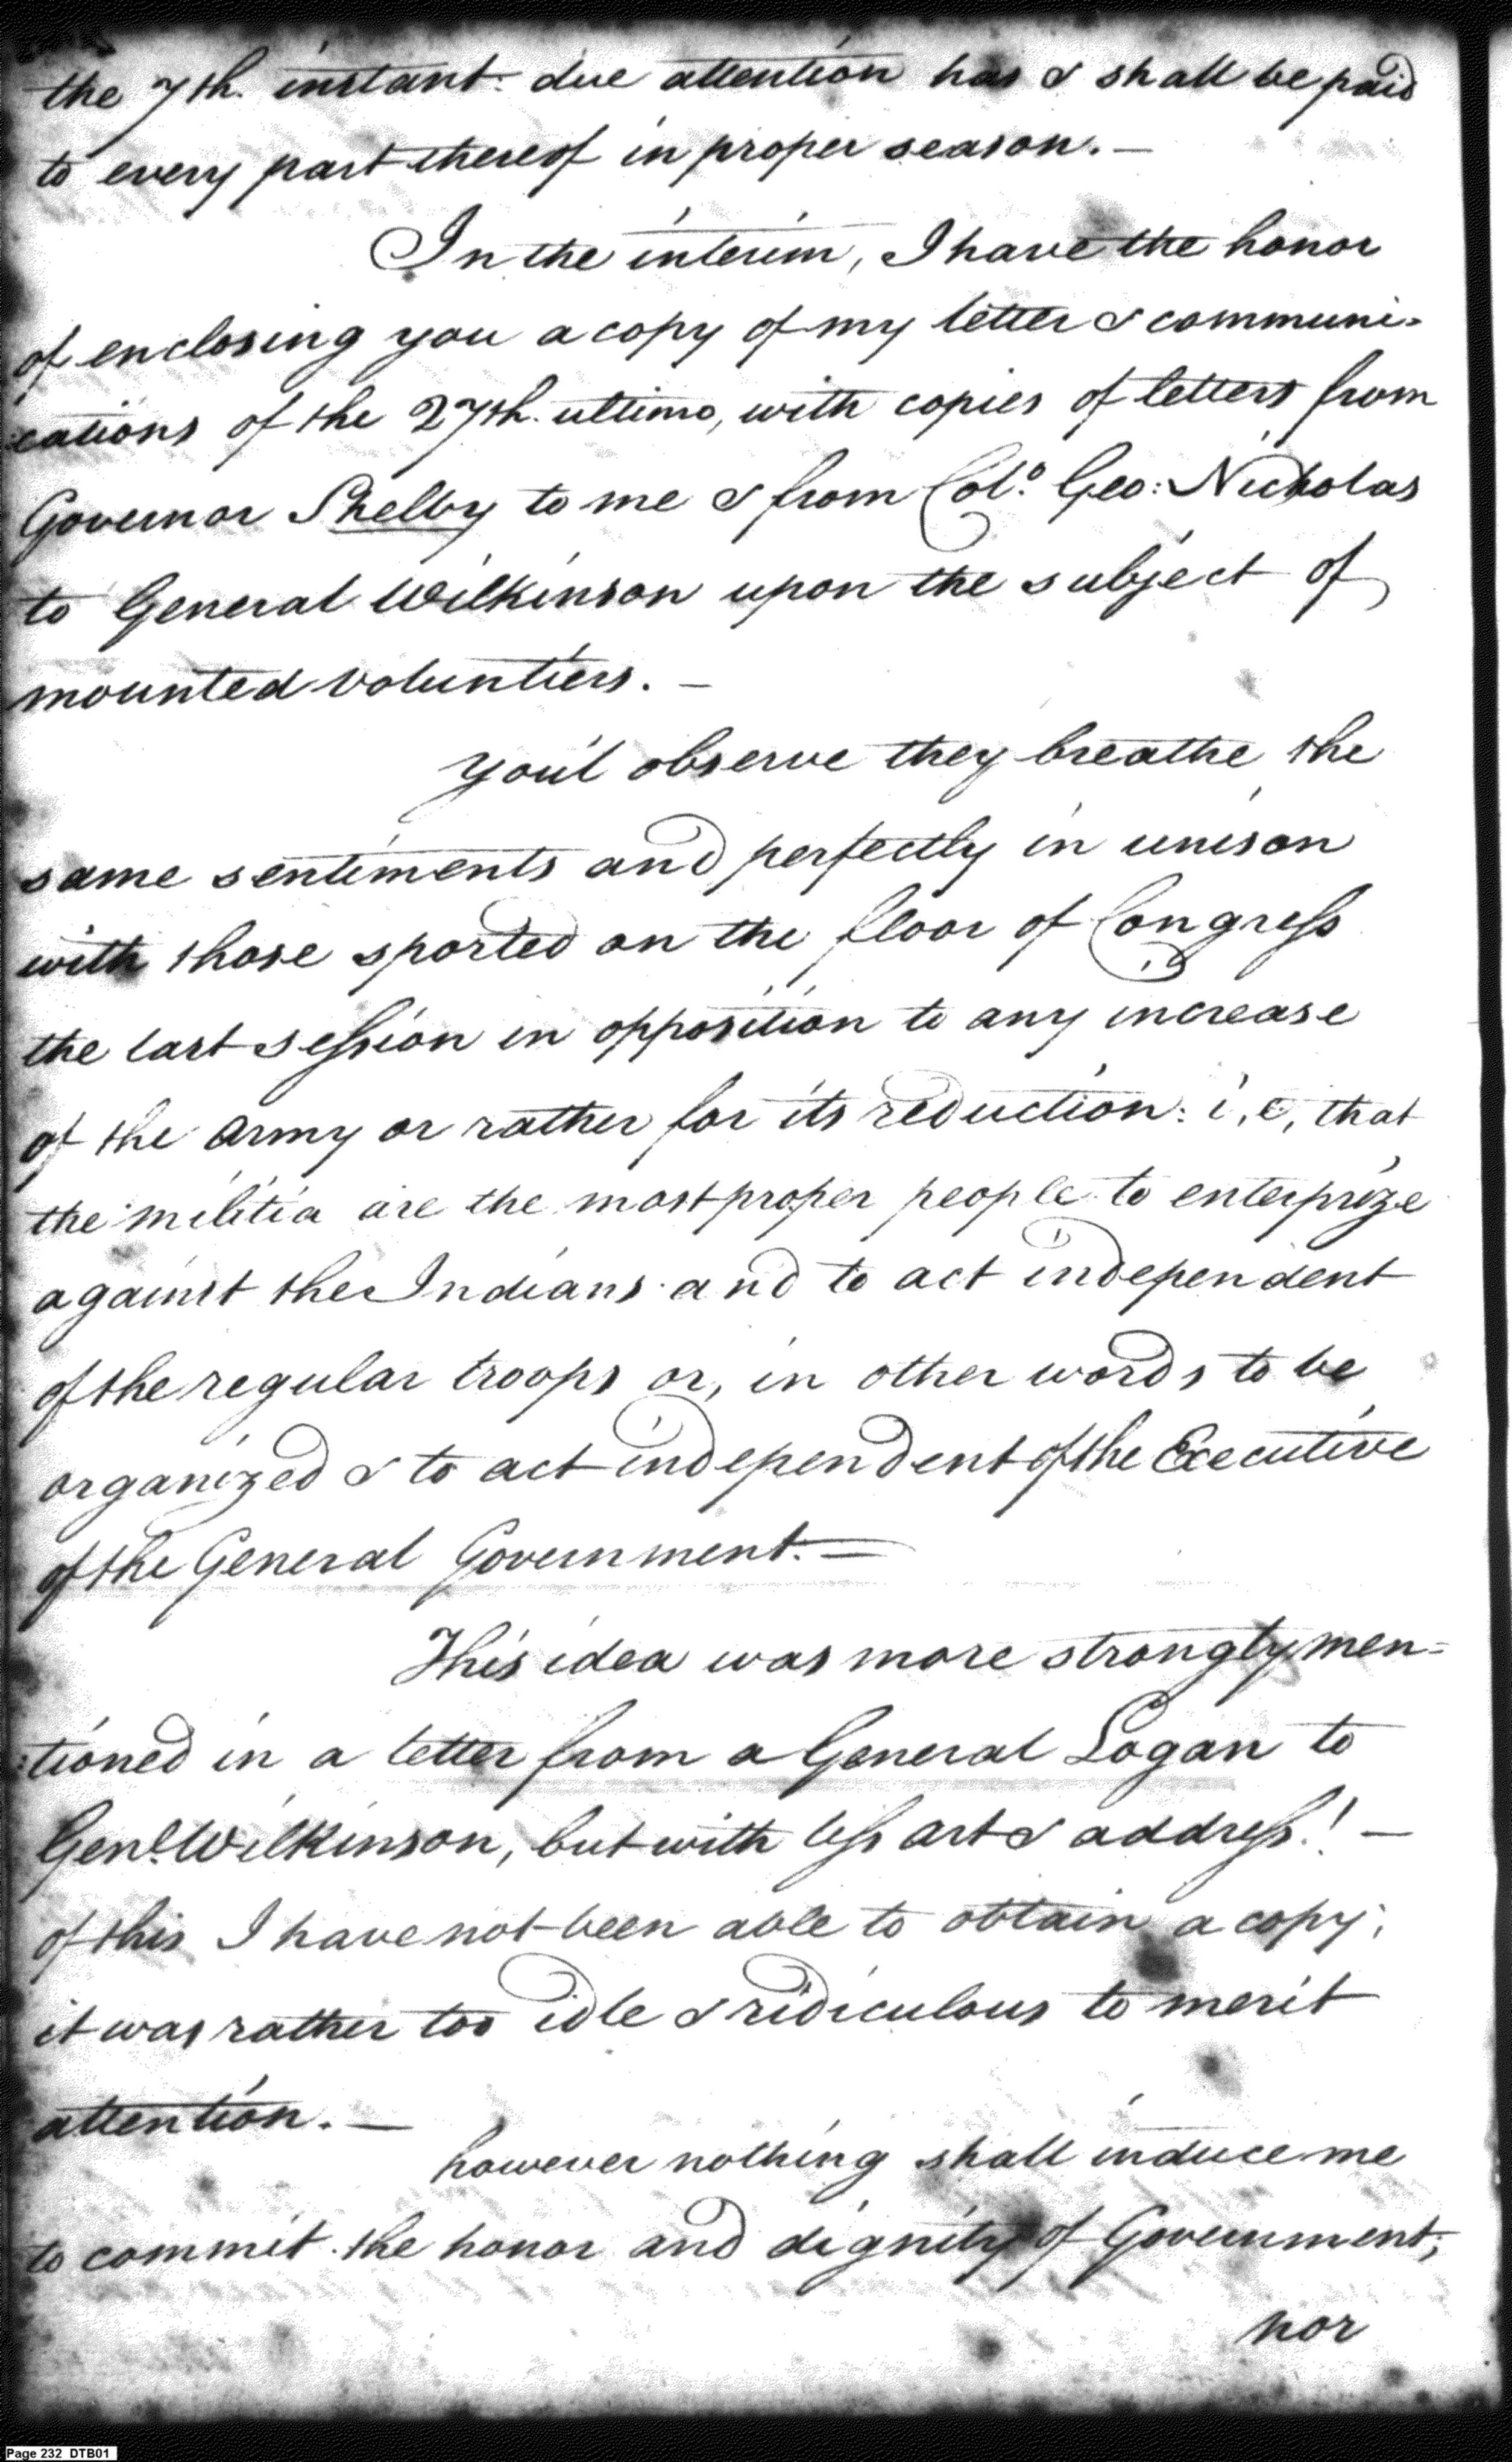 the 7th. instant. due attention has & shall be paid
to every part thereof in proper season. —
In the interim, I have the honor
of enclosing you a copy of my letter & communi-
cations of the 27th. ultimo, with copies of letters from
Governor Shelby to me & from Colo. Geo: Nicholas
to General Wilkinson upon the subject of
mounted voluntiers. —
you'l observe they breathe the
same sentiments and perfectly in unison
with those sported on the floor of Congress
the last session in opposition to any increase
of the army or rather for its reduction: i, e, that
the militia are the most proper people to enterprize
against the Indians and to act independent
of the regular troops or, in other words to be
organized & to act independent of the Executive
of the General Government. —
This idea was more strongly men=
:tioned in a letter from a General Logan to
Genl. Wilkinson, but with less art & address! —
of this I have not been able to obtain a copy;
it was rather too idle & ridiculous to merit
attention. —
however nothing shall induce me
to commit the honor and dignity of Government,
nor
Page 232 DTB01